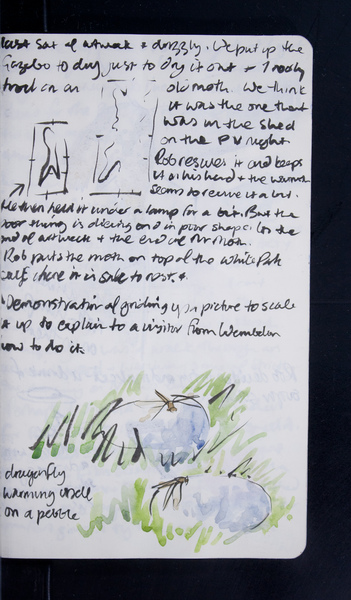 last Sat of artweek & drizzly. We put up the
Gazebo to dry just to dry it out & I nearly
trod on an old moth. We think
it was the one that
was in the shed
on the PV night
Rob rescues it and keeps
it on his hand & the warmth
seems to revive it a bit.
He then held it under a lamp for a bit. But the
poor thing is old and in poor shape. Its the
end of artweek & the end of Mr Moth.
Rob puts the moth on top of the white
where it is safe to rest.
Demonstration of griding up a picture to scale
it up to explain to a visitor from
how to do it.
dragonfly
warming itself
on a pebble